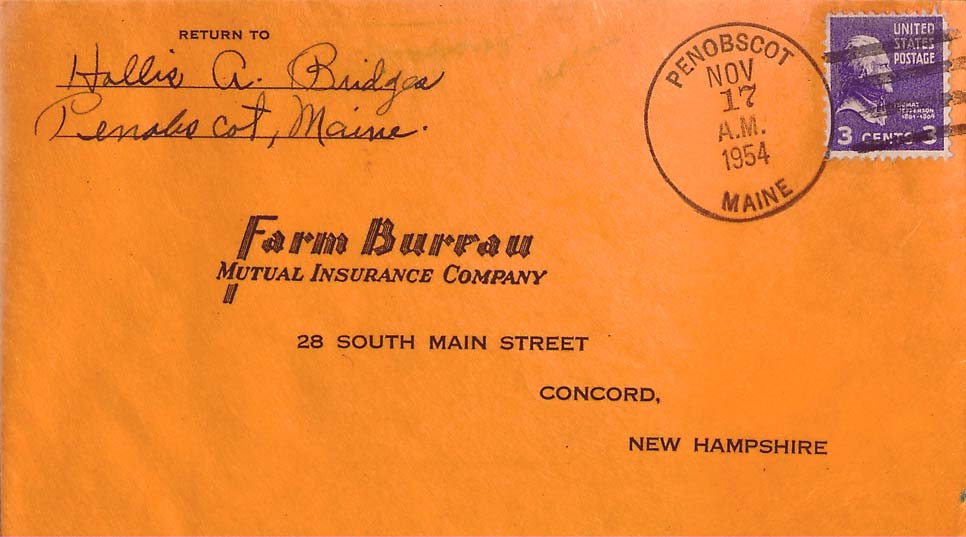 RETURN TO
Hollis A. Bridges
Penobscot, Maine.
PENOBSCOT
NOV
17
A.M.
1954
MAINE
UNITED
STATES
POSTAGE
THOMAS
JEFFERSON
1801-1809
3 CENTS 3
Farm Bureau
MUTUAL INSURANCE COMPANY
28 SOUTH MAIN STREET
CONCORD,
NEW HAMPSHIRE